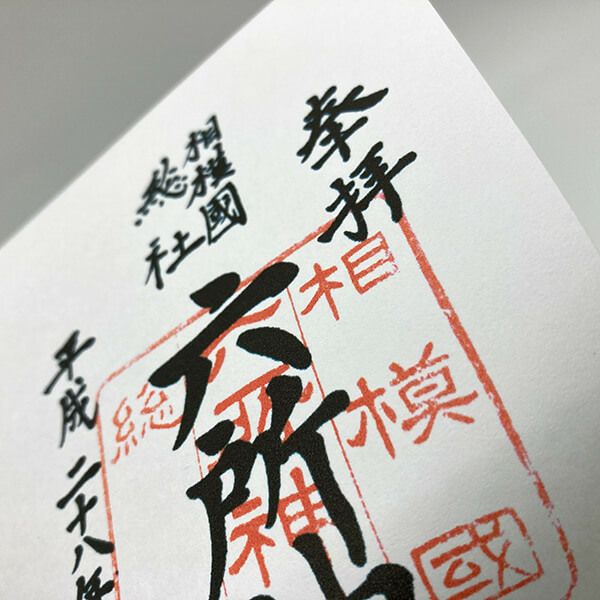 奉拝
相模國
総社
六所
平成二十八年
相模
国
六所神
総